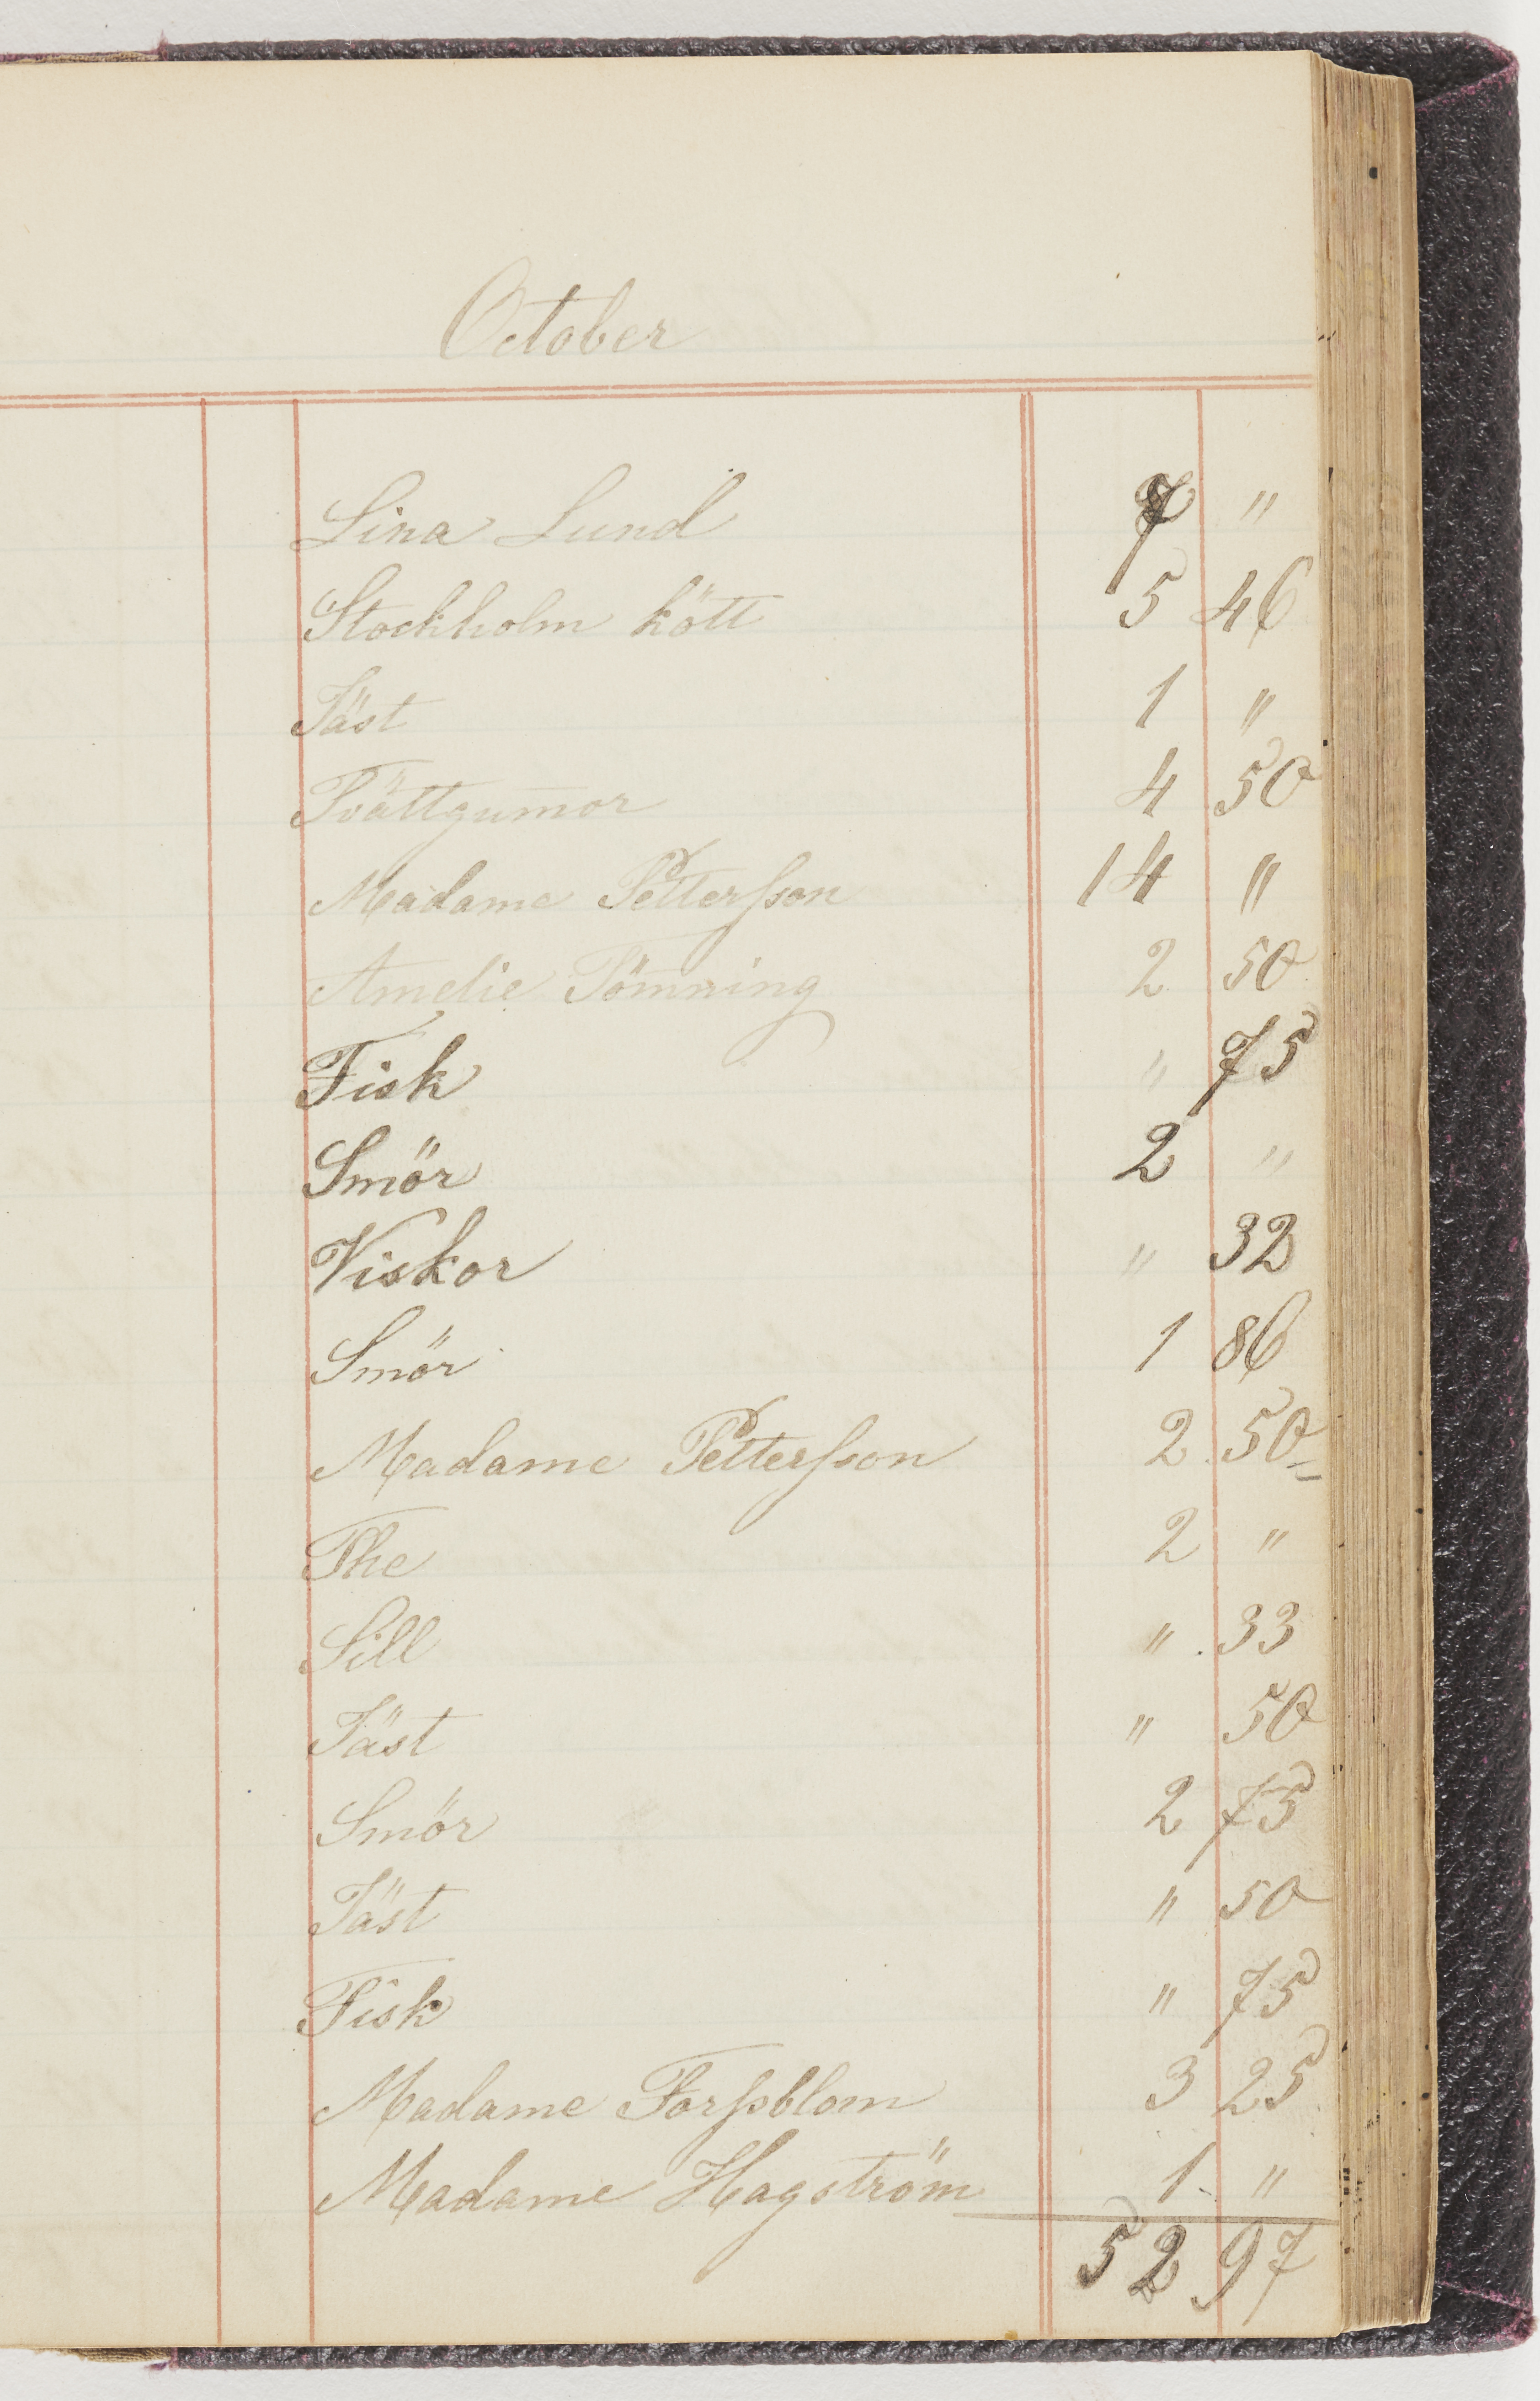 October
Lina Lund 7 "
Stockholm kött 5 46
Jäst 1 "
Tvättgum̄or 4 50
Madame Petterſson 14 "
Amelie Tömning 2 50
Fisk " 75
Smör 2 "
Viskor " 32
Smör 1 86
Madame Petterſson 2 50
The 2 "
Sill " 33
Jäst " 50
Smör 2 75
Jäst " 50
Fisk " 75
Madame Forſsblom 3 25
Madame Hagström 1 "
52 97